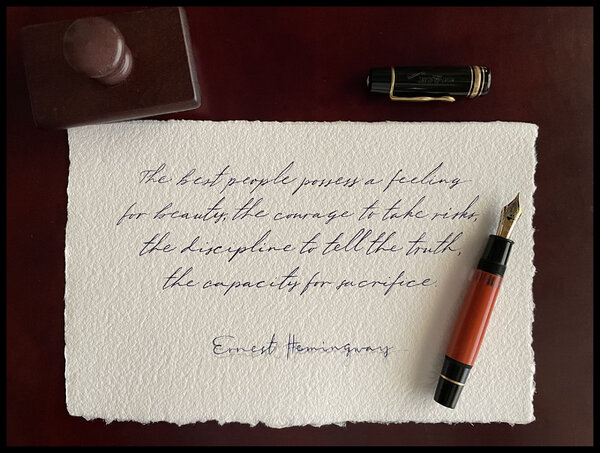 The best people possess a feeling
for beauty, the courage to take risks,
the discipline to tell the truth,
the capacity for sacrifice.
Ernest Hemingway